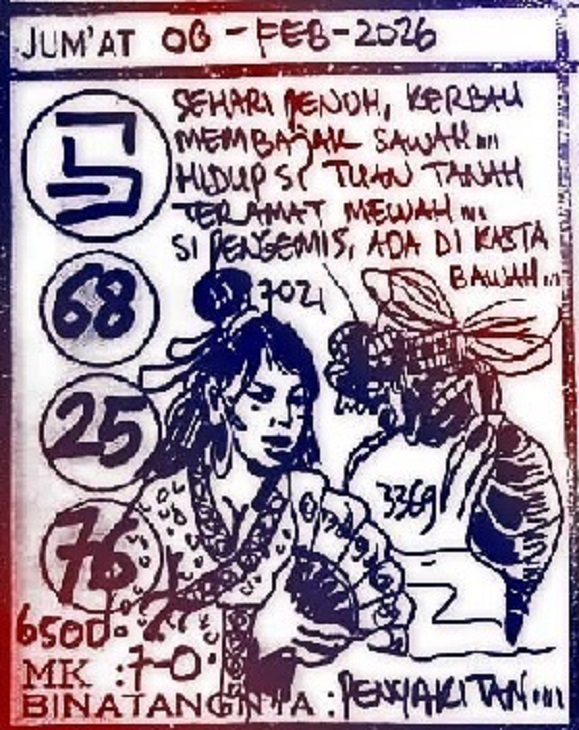 JUM'AT 06 - FEB - 2026
5
SEHARI PENUH, KERBAU
MEMBAJAK SAWAH...
HIDUP SI TUAN TANAH
TERAMAT MEWAH...
SI PENGEMIS, ADA DI KASTA
BAWAH...
68
25
76
3369
6500
MK : 7-0
BINATANGNYA : PENYAKITAN...